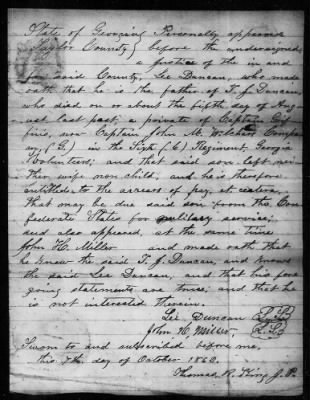 State of Georgia } Personally appeared
Taylor County } before the undersigned,
a Justice of the in and
for said County, Lee Duncan, who made
oath that he is the father of T. J. Duncan,
who died on or about the fifth day of Aug-
ust last past, a private of Captain Grif
fin's, now Captain John M. Company
(G.) in the Sixth (6) Regiment Georgia
Volunteers; and that said son left nei-
ther wife nor child, and he is therefore
entitled to the arrears of pay, et cetera,
that may be due said son from the Con-
federate States for military service;
and also appeared, at the same time
John H. Miller and made oath that
he knew the said T. J. Duncan, and knows
the said Lee Duncan, and that his fore
going statements are true, and that he
is not interested therein.
Lee Duncan (L.S.)
John H. Miller (L.S.)
Sworn to and subscribed before me,
this 7th day of October 1862.
Thomas R. King J.P.